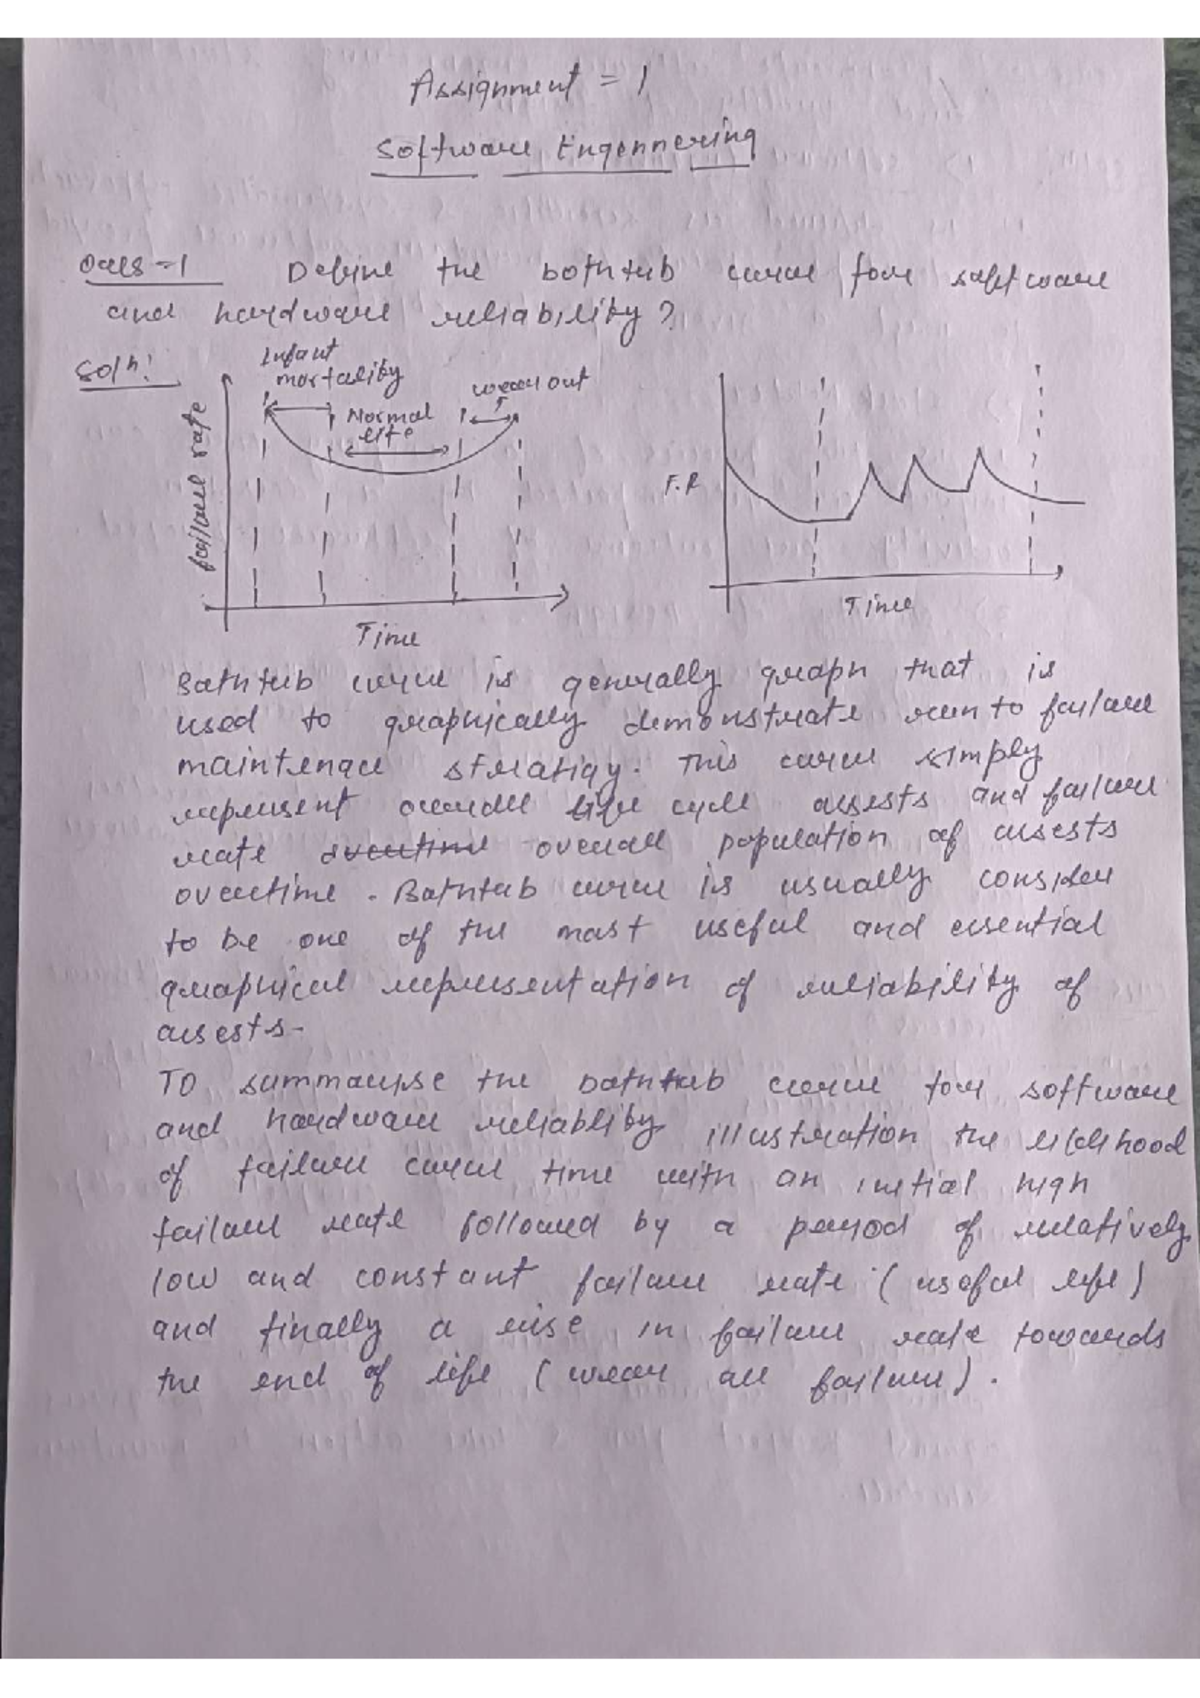 Assignment = 1
Software Engennering
Ques = 1 Define the bathtub curve for software
and hardware reliability?
Soln:
Infant
mortality
wear out
Normal
life
failure rate
Time
F.R
Time
Bathtub curve is generally graph that is
used to graphically demonstrate run to failure
maintenace
This curve simply
represent overall life cycle assests and failure
rate overtime overall population of assests
overtime. Bathtub curve is usually consider
to be one of the most useful and essential
graphical representation of reliability of
assests-
To summaryse the bathtub curve for software
and hardware reliablity illustration the
of failure curve time with an initial high
failure rate followed by a period of relatively
low and constant failure rate (useful life)
and finally a rise in failure rate towards
the end of life (wear all failure).